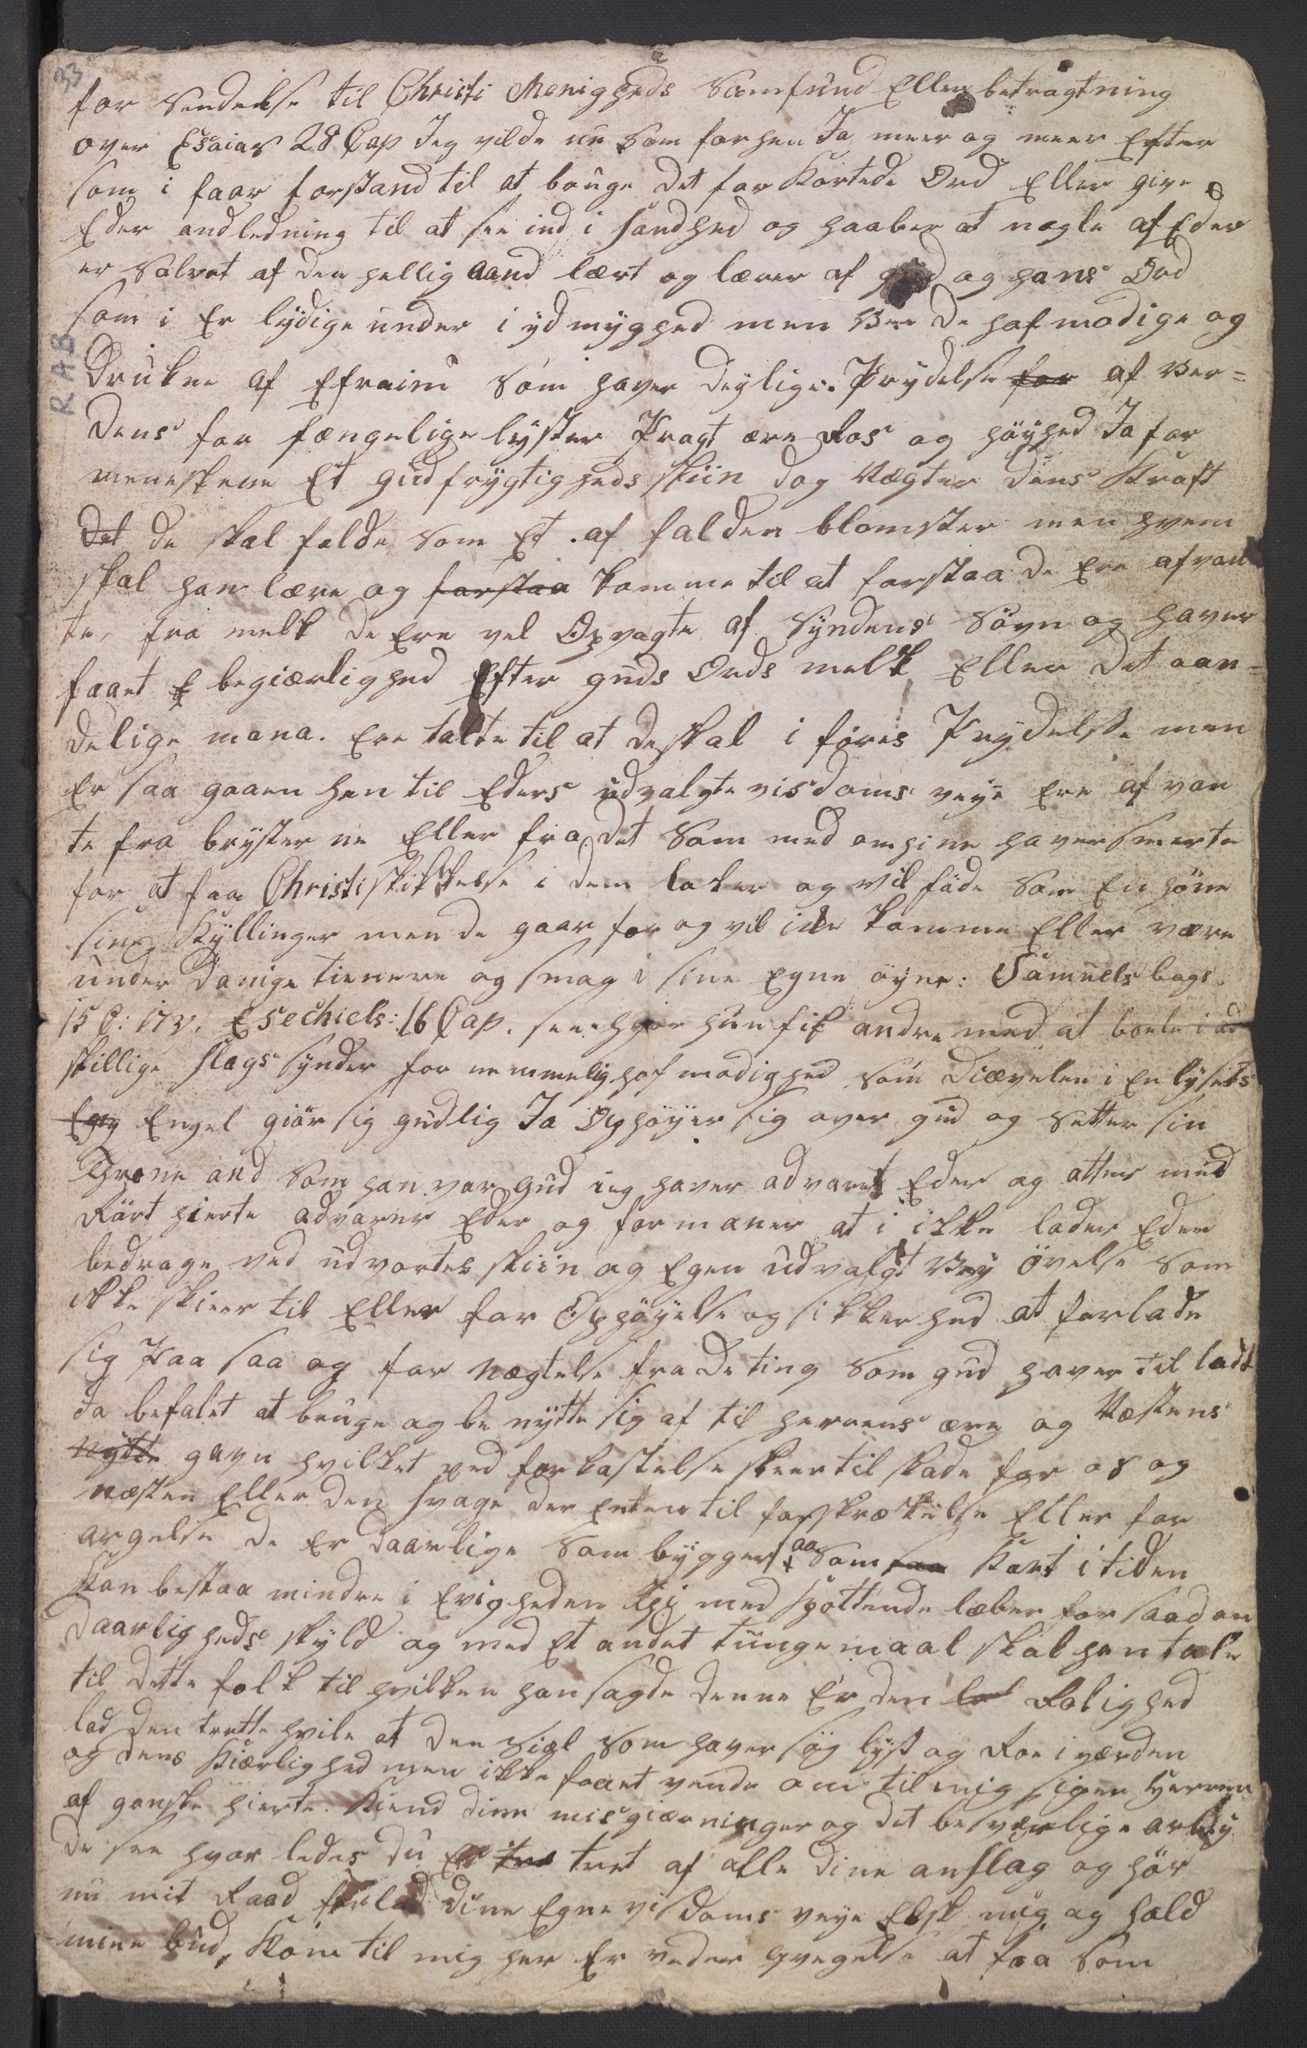 33
R A B
for Sendelse til Christi Menigheds Samfund Eller betragtning
over Esaias 28 Cap Jeg vilde nu Som forhen Ja meer og meer Efter
som i faar forstand til at bruge Det for Kortede Ord Eller give
Eder andledning til at see ind i Sandhed og haaber at nogle af Eder
er Salvet af den hellig aand lært og lærer af gud og hans Ord
som i Er lydige under i ydmyghed men Vee De hofmodige og
Drukne af Efraim Som haver deylige Prydelse for af Ver=
Dens for fængelige lyster Pragt ære Ros og höyhed Ja for
menneskene Et gudfrygtigheds skiin dog Nægter Dens Kraft
Det de skal falde Som Et af falden blomster men hvem
skal han lære og forstaa komme til at forstaa De Ere afvan
te fra melk De Ere vel Opvagte af Syndens Sövn og haver
faaet E begiærlighed Efter guds Ords melk Eller Det aan=
delige mana. Ere talte til at De skal i föres Prydelse men
Er saa gaaen hen til Eders udvalgte visdoms veye Ere afvan
te fra brysterne Eller fra Det Som med omhine haver smerte
for at faa Christi skikkelse i dem laker og vil föde Som En höne
sine Kyllinger men de gaar for og vil ikke komme Eller være
underdanige tienere og smag i sine Egne öyne: Samuels bogs
15 C: 17 v. Esechiels: 16 Cap. see hvor hun fik andre med at boele i ad
skillige slags synder for nemmelig hofmodighed som Diævelen i En lysets
Eng Engel giör sig gudlig Ja Ophöyer sig over gud og Setter sin
Throne and Som han var gud ieg haver advaret Eder og atter med
Rört hierte advarer Eder og formaner at i ikke lader Eder
bedrage ved udvortes skiin og Egen udvalgt Vey Övelse Som
ikke skeer til Eller for Ophöyelse og sikkerhed at forlade
sig Paa saa og for Nægtelse fra De ting Som gud haver til ladt
Ja befalet at bruge og be nytte sig af til herrens ære og Næstens
nytte gavn hvilket ved forkastelse skeer til skade for os og
næsten Eller den svage der Enten til forskrækkelse Eller for
argelse De Er Daarlige Som bygger paa Som saa Kort i tiden
kan bestaa mindre i Evigheden thi med spottende læber for saadan
Daarligheds skyld og med Et andet tungemaal skal han tale
til dette folk til hvilken han sagde denne Er den lad Rolighed
lad den trætte hvile at Den siæl Som haver sög lyst og Roe i verden
og dens Kiærlighed men ikke faaet vende om til mig siger Herren
af ganske hierte. Kiend dine misgiærninger og det besværlige arbey
de see hvorledes du Er tre tret af alle dine anslag og hör
nu mit Raad forlad dine Egne visdoms veye Elsk mig og hold
mine bud, Kom til mig her Er vederqvegelse at faa Som